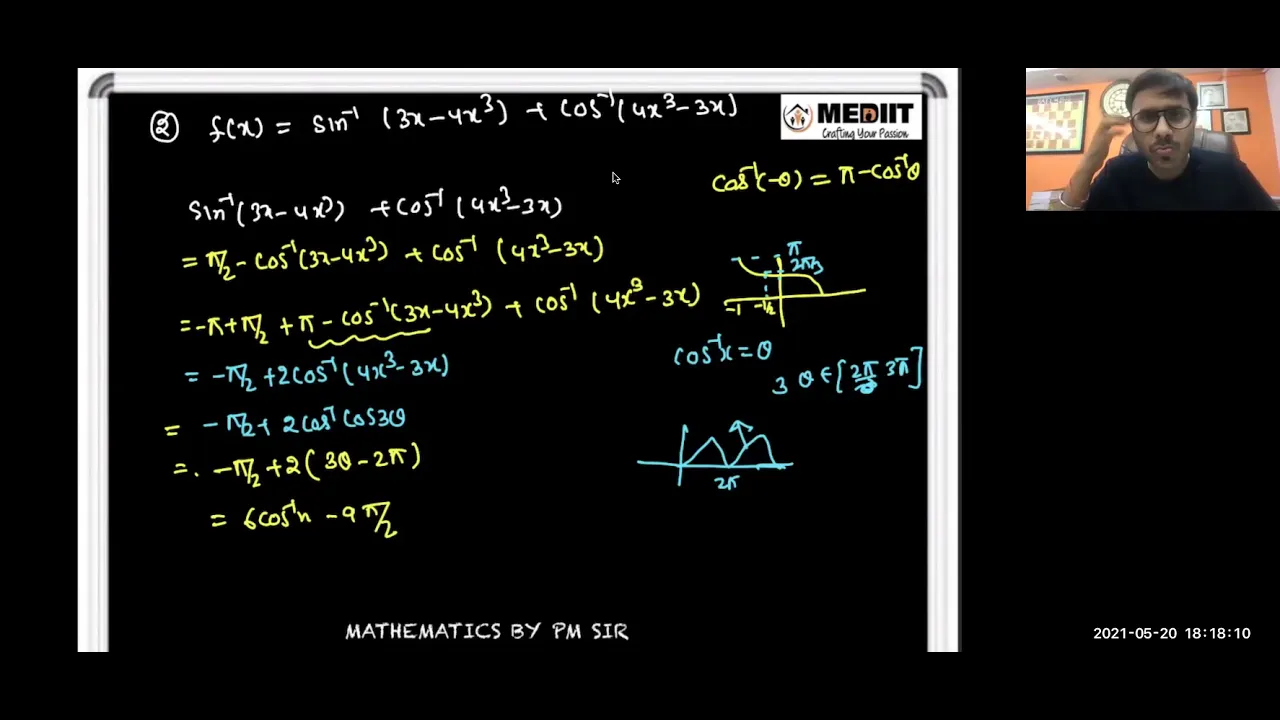 ② f(x) = sin⁻¹ (3x-4x³) + cos⁻¹ (4x³-3x)
MEDIIT
Crafting Your Passion
cos⁻¹(-θ) = π - cos⁻¹θ
sin⁻¹(3x-4x³) + cos⁻¹ (4x³-3x)
= π/2 - cos⁻¹(3x-4x³) + cos⁻¹ (4x³-3x)
π
2π/3
-1 -1/2
= -π+π/2 + π - cos⁻¹(3x-4x³) + cos⁻¹ (4x³-3x)
cos⁻¹x = θ
= -π/2 + 2cos⁻¹(4x³-3x)
3 θ ∈ [2π 3π]
= -π/2 + 2cos⁻¹ cos3θ
= . -π/2 + 2(3θ - 2π)
2π
= 6cos⁻¹x - 9π/2
MATHEMATICS BY PM SIR
2021-05-20 18:18:10